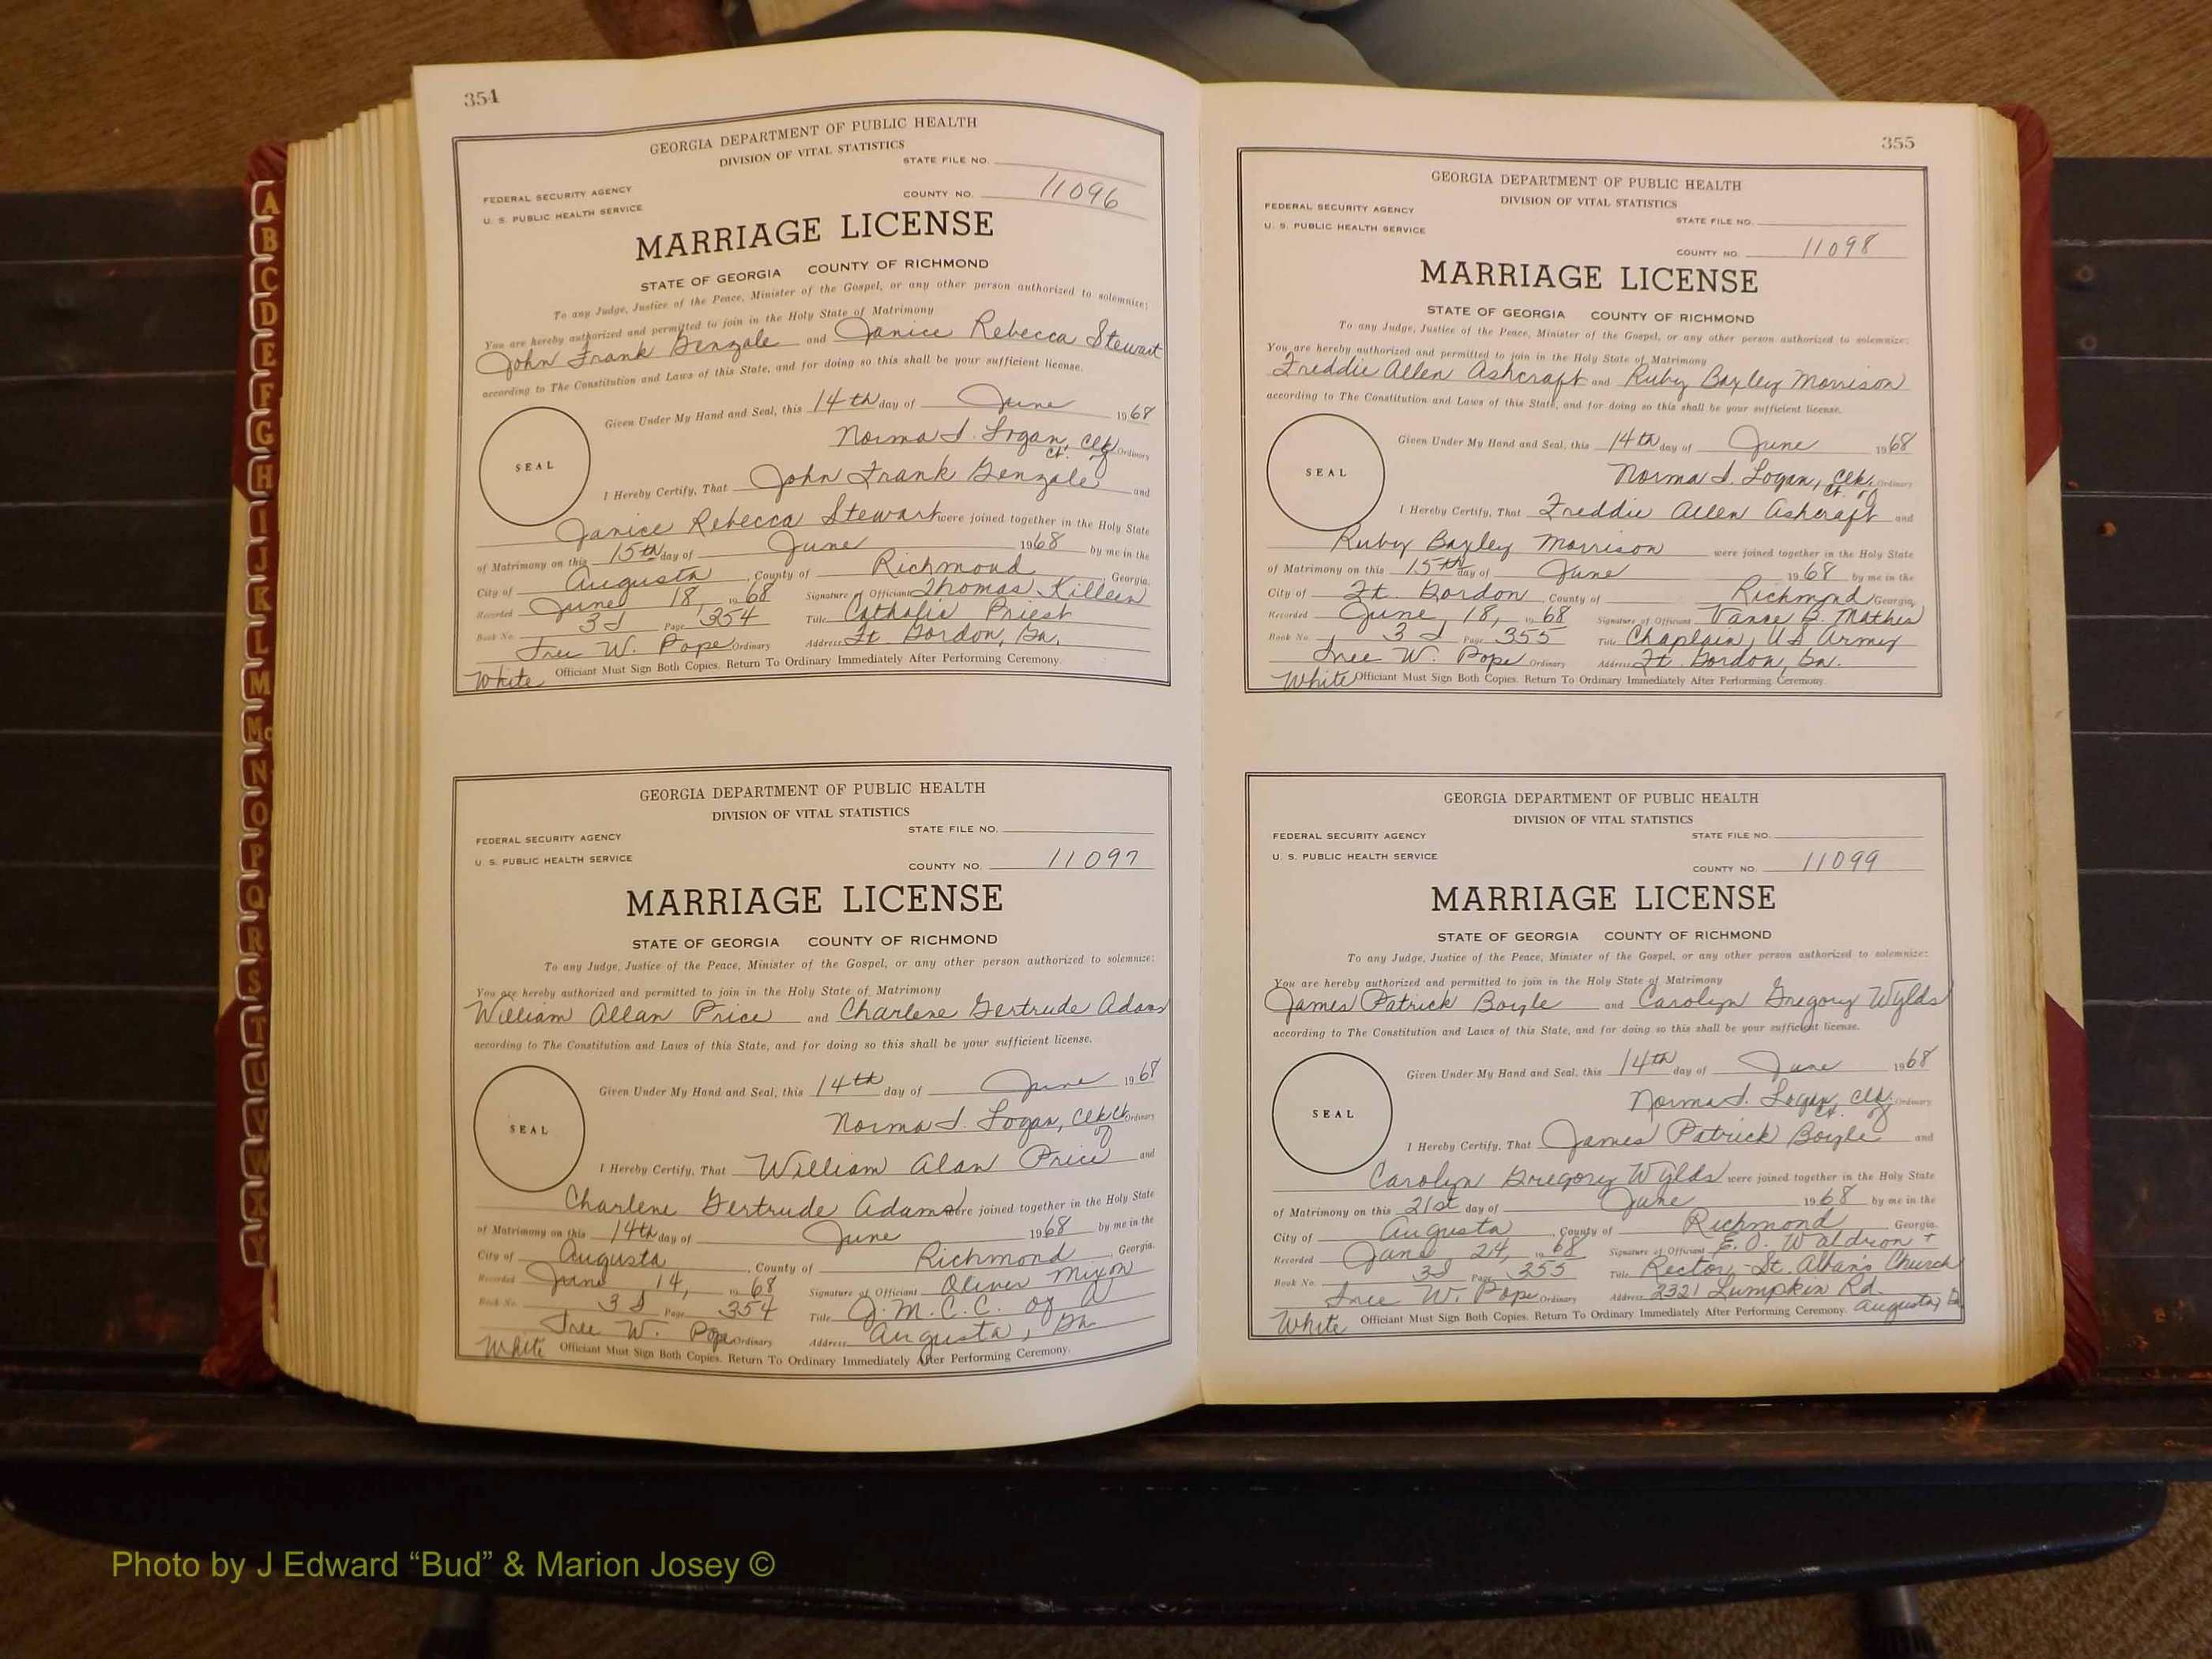 354
GEORGIA DEPARTMENT OF PUBLIC HEALTH
DIVISION OF VITAL STATISTICS
STATE FILE NO.
FEDERAL SECURITY AGENCY
COUNTY NO. 11096
U. S. PUBLIC HEALTH SERVICE
MARRIAGE LICENSE
STATE OF GEORGIA COUNTY OF RICHMOND
To any Judge, Justice of the Peace, Minister of the Gospel, or any other person authorized to solemnize:
You are hereby authorized and permitted to join in the Holy State of Matrimony
John Frank Genzale and Janice Rebecca Stewart
according to The Constitution and Laws of this State, and for doing so this shall be your sufficient license.
Given Under My Hand and Seal, this 14th day of June 1968
Norma I. Logan, Clk Ct. of Ordinary
SEAL
I Hereby Certify, That John Frank Genzale and
Janice Rebecca Stewart were joined together in the Holy State
of Matrimony on this 15th day of June 1968 by me in the
City of Augusta, County of Richmond, Georgia.
Recorded June 18, 1968 Signature of Officiant Thomas Killeen
Book No. 3J Page 354 Title Catholic Priest
Tree W. Pope Ordinary Address Ft. Gordon, Ga.
White Officiant Must Sign Both Copies. Return To Ordinary Immediately After Performing Ceremony.
GEORGIA DEPARTMENT OF PUBLIC HEALTH
DIVISION OF VITAL STATISTICS
STATE FILE NO.
FEDERAL SECURITY AGENCY
U. S. PUBLIC HEALTH SERVICE
COUNTY NO. 11097
MARRIAGE LICENSE
STATE OF GEORGIA COUNTY OF RICHMOND
To any Judge, Justice of the Peace, Minister of the Gospel, or any other person authorized to solemnize:
You are hereby authorized and permitted to join in the Holy State of Matrimony
William Allan Price and Charlene Gertrude Adams
according to The Constitution and Laws of this State, and for doing so this shall be your sufficient license.
Given Under My Hand and Seal, this 14th day of June 1968
Norma I. Logan, Clk Ct. of Ordinary
SEAL
I Hereby Certify, That William Alan Price and
Charlene Gertrude Adams were joined together in the Holy State
of Matrimony on this 14th day of June 1968 by me in the
City of Augusta, County of Richmond, Georgia.
Recorded June 14, 1968 Signature of Officiant Oliver Mixon
Book No. 3J Page 354 Title J. M. C. C. of A
Tree W. Pope Ordinary Address Augusta, Ga
White Officiant Must Sign Both Copies. Return To Ordinary Immediately After Performing Ceremony.
355
GEORGIA DEPARTMENT OF PUBLIC HEALTH
DIVISION OF VITAL STATISTICS
FEDERAL SECURITY AGENCY
STATE FILE NO.
U. S. PUBLIC HEALTH SERVICE
COUNTY NO. 11098
MARRIAGE LICENSE
STATE OF GEORGIA COUNTY OF RICHMOND
To any Judge, Justice of the Peace, Minister of the Gospel, or any other person authorized to solemnize:
You are hereby authorized and permitted to join in the Holy State of Matrimony
Freddie Allen Ashcraft and Ruby Baxley Morrison
according to The Constitution and Laws of this State, and for doing so this shall be your sufficient license.
Given Under My Hand and Seal, this 14th day of June 1968
Norma I. Logan, Clk. Ct. of Ordinary
SEAL
I Hereby Certify, That Freddie Allen Ashcraft and
Ruby Baxley Morrison were joined together in the Holy State
of Matrimony on this 15th day of June 1968 by me in the
City of Ft. Gordon, County of Richmond Georgia.
Recorded June 18, 1968 Signature of Officiant Vance B. Mathis
Book No. 3J Page 355 Title Chaplain, US Army
Tree W. Pope Ordinary Address Ft. Gordon, Ga.
White Officiant Must Sign Both Copies. Return To Ordinary Immediately After Performing Ceremony.
GEORGIA DEPARTMENT OF PUBLIC HEALTH
DIVISION OF VITAL STATISTICS
FEDERAL SECURITY AGENCY
STATE FILE NO.
U. S. PUBLIC HEALTH SERVICE
COUNTY NO. 11099
MARRIAGE LICENSE
STATE OF GEORGIA COUNTY OF RICHMOND
To any Judge, Justice of the Peace, Minister of the Gospel, or any other person authorized to solemnize:
You are hereby authorized and permitted to join in the Holy State of Matrimony
James Patrick Boyle and Carolyn Gregory Wylds
according to The Constitution and Laws of this State, and for doing so this shall be your sufficient license.
Given Under My Hand and Seal, this 14th day of June 1968
Norma I. Logan, Clk. Ct. of Ordinary
SEAL
I Hereby Certify, That James Patrick Boyle and
Carolyn Gregory Wylds were joined together in the Holy State
of Matrimony on this 21st day of June 1968 by me in the
City of Augusta, County of Richmond, Georgia.
Recorded June 24, 1968 Signature of Officiant E. O. Waldron +
Book No. 3J Page 355 Title Rector-St. Alban's Church
Tree W. Pope Ordinary Address 2321 Lumpkin Rd.
White Officiant Must Sign Both Copies. Return To Ordinary Immediately After Performing Ceremony. Augusta, Ga
A
B
C
D
E
F
G
H
I
J
K
L
M
Mc
N
O
P
Q
R
S
T
U
V
W
X
Y
Photo by J Edward “Bud” & Marion Josey ©